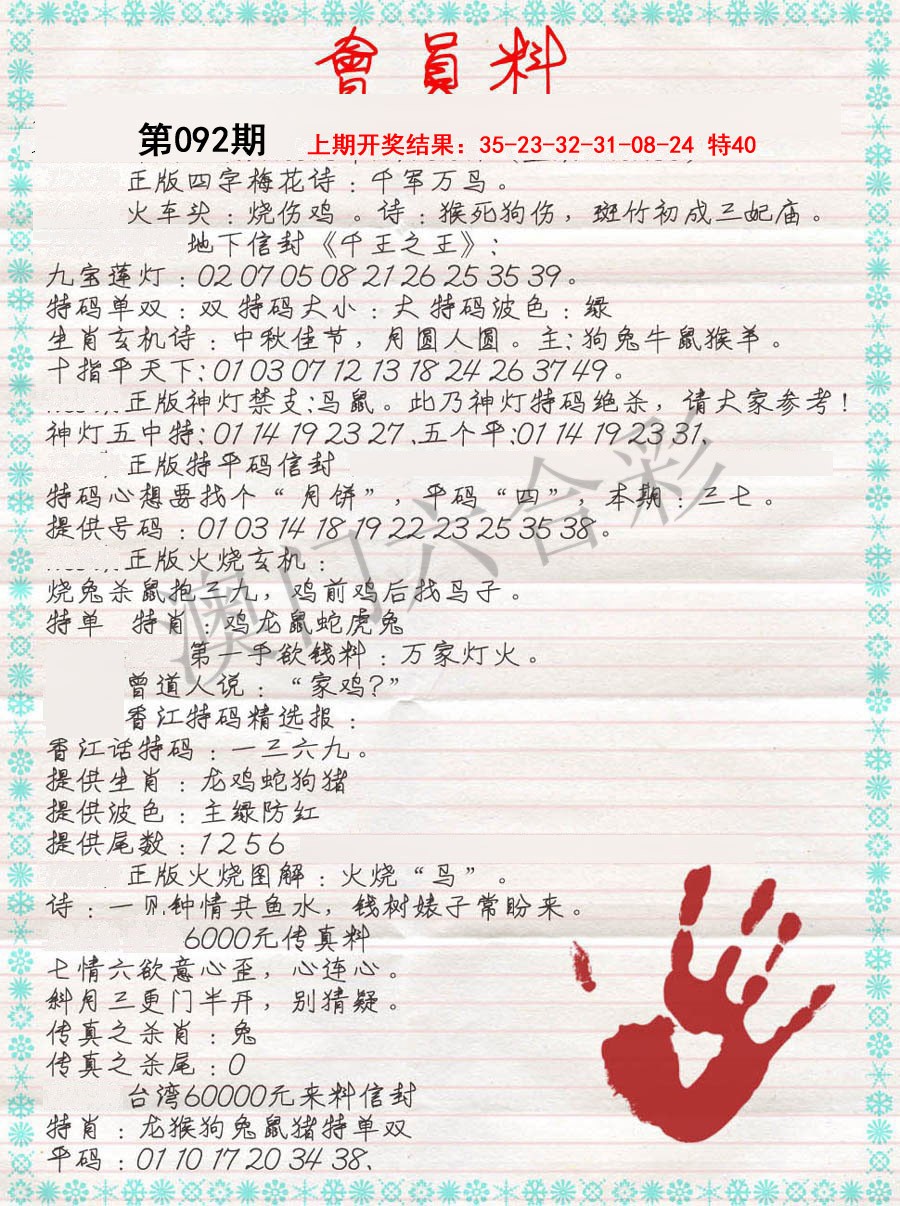 會員料
第092期 上期开奖结果：35-23-32-31-08-24 特40
正版四字梅花诗：千军万鸟。
火车头：烧伤鸡。诗：猴死狗伤，斑竹初成三妃庙。
地下信封《千王之王》：
九宝莲灯：02 07 05 08 21 26 25 35 39。
特码单双：双 特码大小：大 特码波色：绿
生肖玄机诗：中秋佳节，月圆人圆。主：狗兔牛鼠猴羊。
十指平天下：01 03 07 12 13 18 24 26 37 49。
正版神灯禁支：马鼠。此乃神灯特码绝杀，请大家参考！
神灯五中特：01 14 19 23 27、五个平：01 14 19 23 31、
正版特平码信封
特码心想要找个“月饼”，平码“四”，本期：三七。
提供号码：01 03 14 18 19 22 23 25 35 38。
正版火烧玄机：
烧兔杀鼠抱三九，鸡前鸡后找鸟子。
特单 特肖：鸡龙鼠蛇虎兔
第一手欲钱料：万家灯火。
曾道人说：“家鸡？”
香江特码精选报：
香江话特码：一三六九。
提供生肖：龙鸡蛇狗猪
提供波色：主绿防红
提供尾数：1 2 5 6
正版火烧图解：火烧“鸟”。
诗：一见钟情共鱼水，钱树婊子常盼来。
6000元传真料
七情六欲意心歪，心连心。
斜月三更门半开，别猜疑。
传真之杀肖：兔
传真之杀尾：0
台湾60000元来料信封
特肖：龙猴狗兔鼠猪特单双
平码：01 10 17 20 34 38、
澳门六合彩